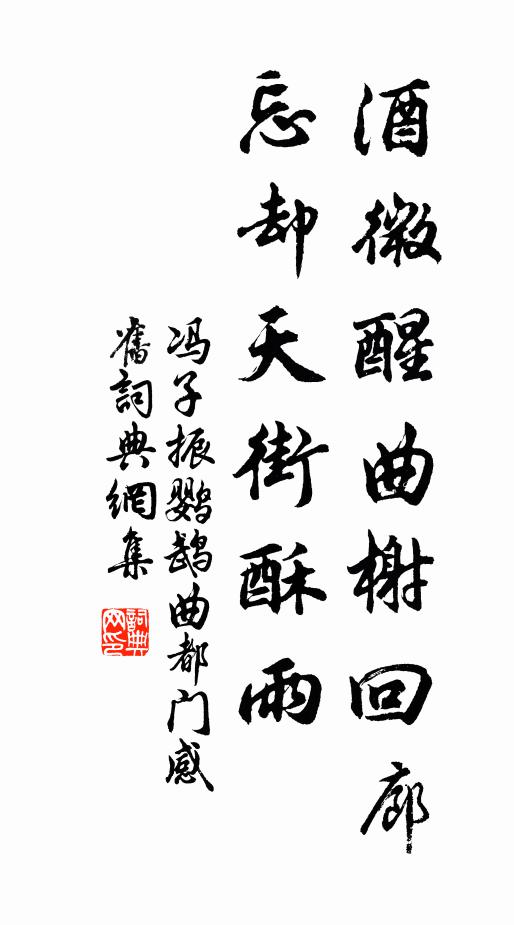 酒微醒曲榭回廊
忘却天街酥雨
冯子振鹦鹉曲都门感
舊詞典網集
詞典網印